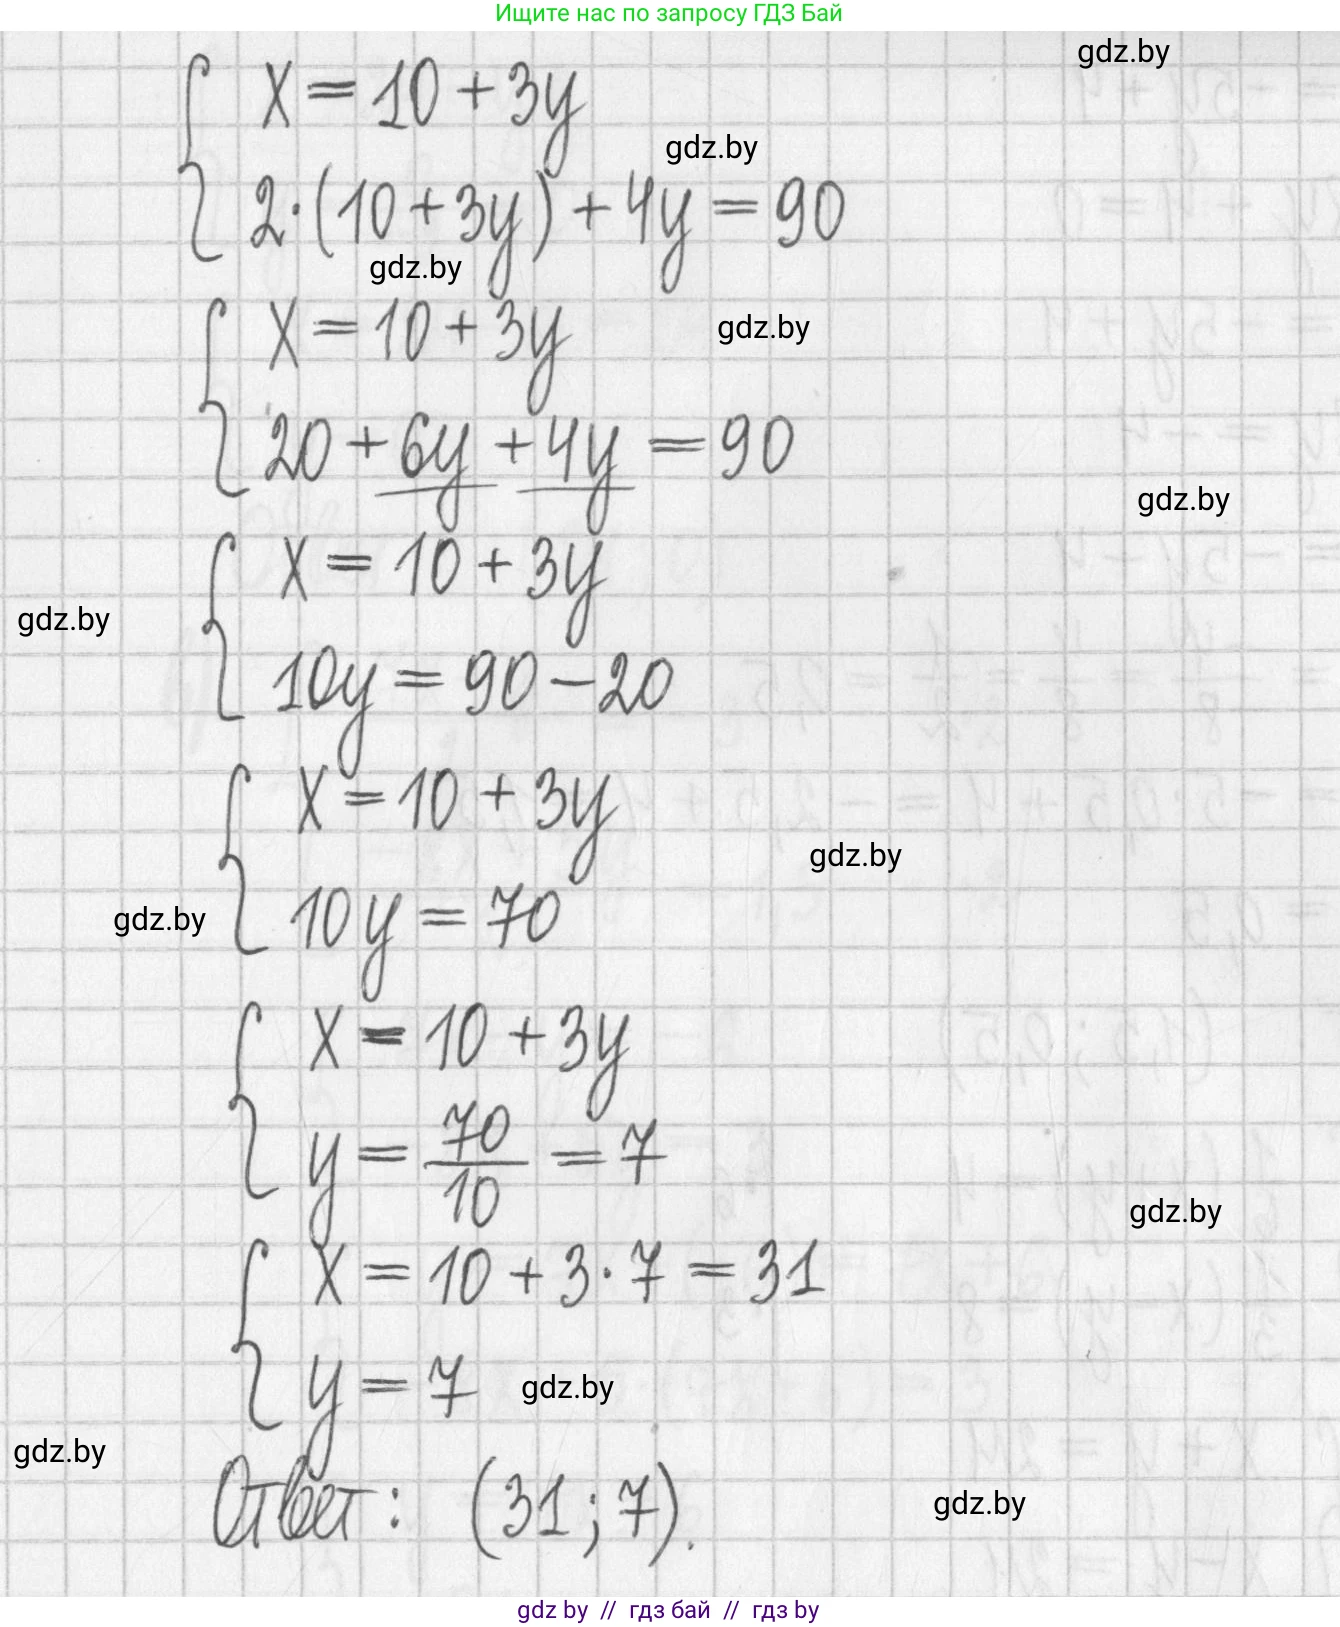 Ищите нас по запросу ГДЗ Бай
gdz.by
x = 10 + 3y
gdz.by
2·(10 + 3y) + 4y = 90
gdz.by
x = 10 + 3y
gdz.by
20 + 6y + 4y = 90
gdz.by
x = 10 + 3y
gdz.by
10y = 90 - 20
x = 10 + 3y
gdz.by
10y = 70
gdz.by
x = 10 + 3y
y = 70/10 = 7
gdz.by
x = 10 + 3·7 = 31
y = 7
gdz.by
gdz.by
Ответ: (31; 7).
gdz.by
gdz by // гдз бай // гдз by